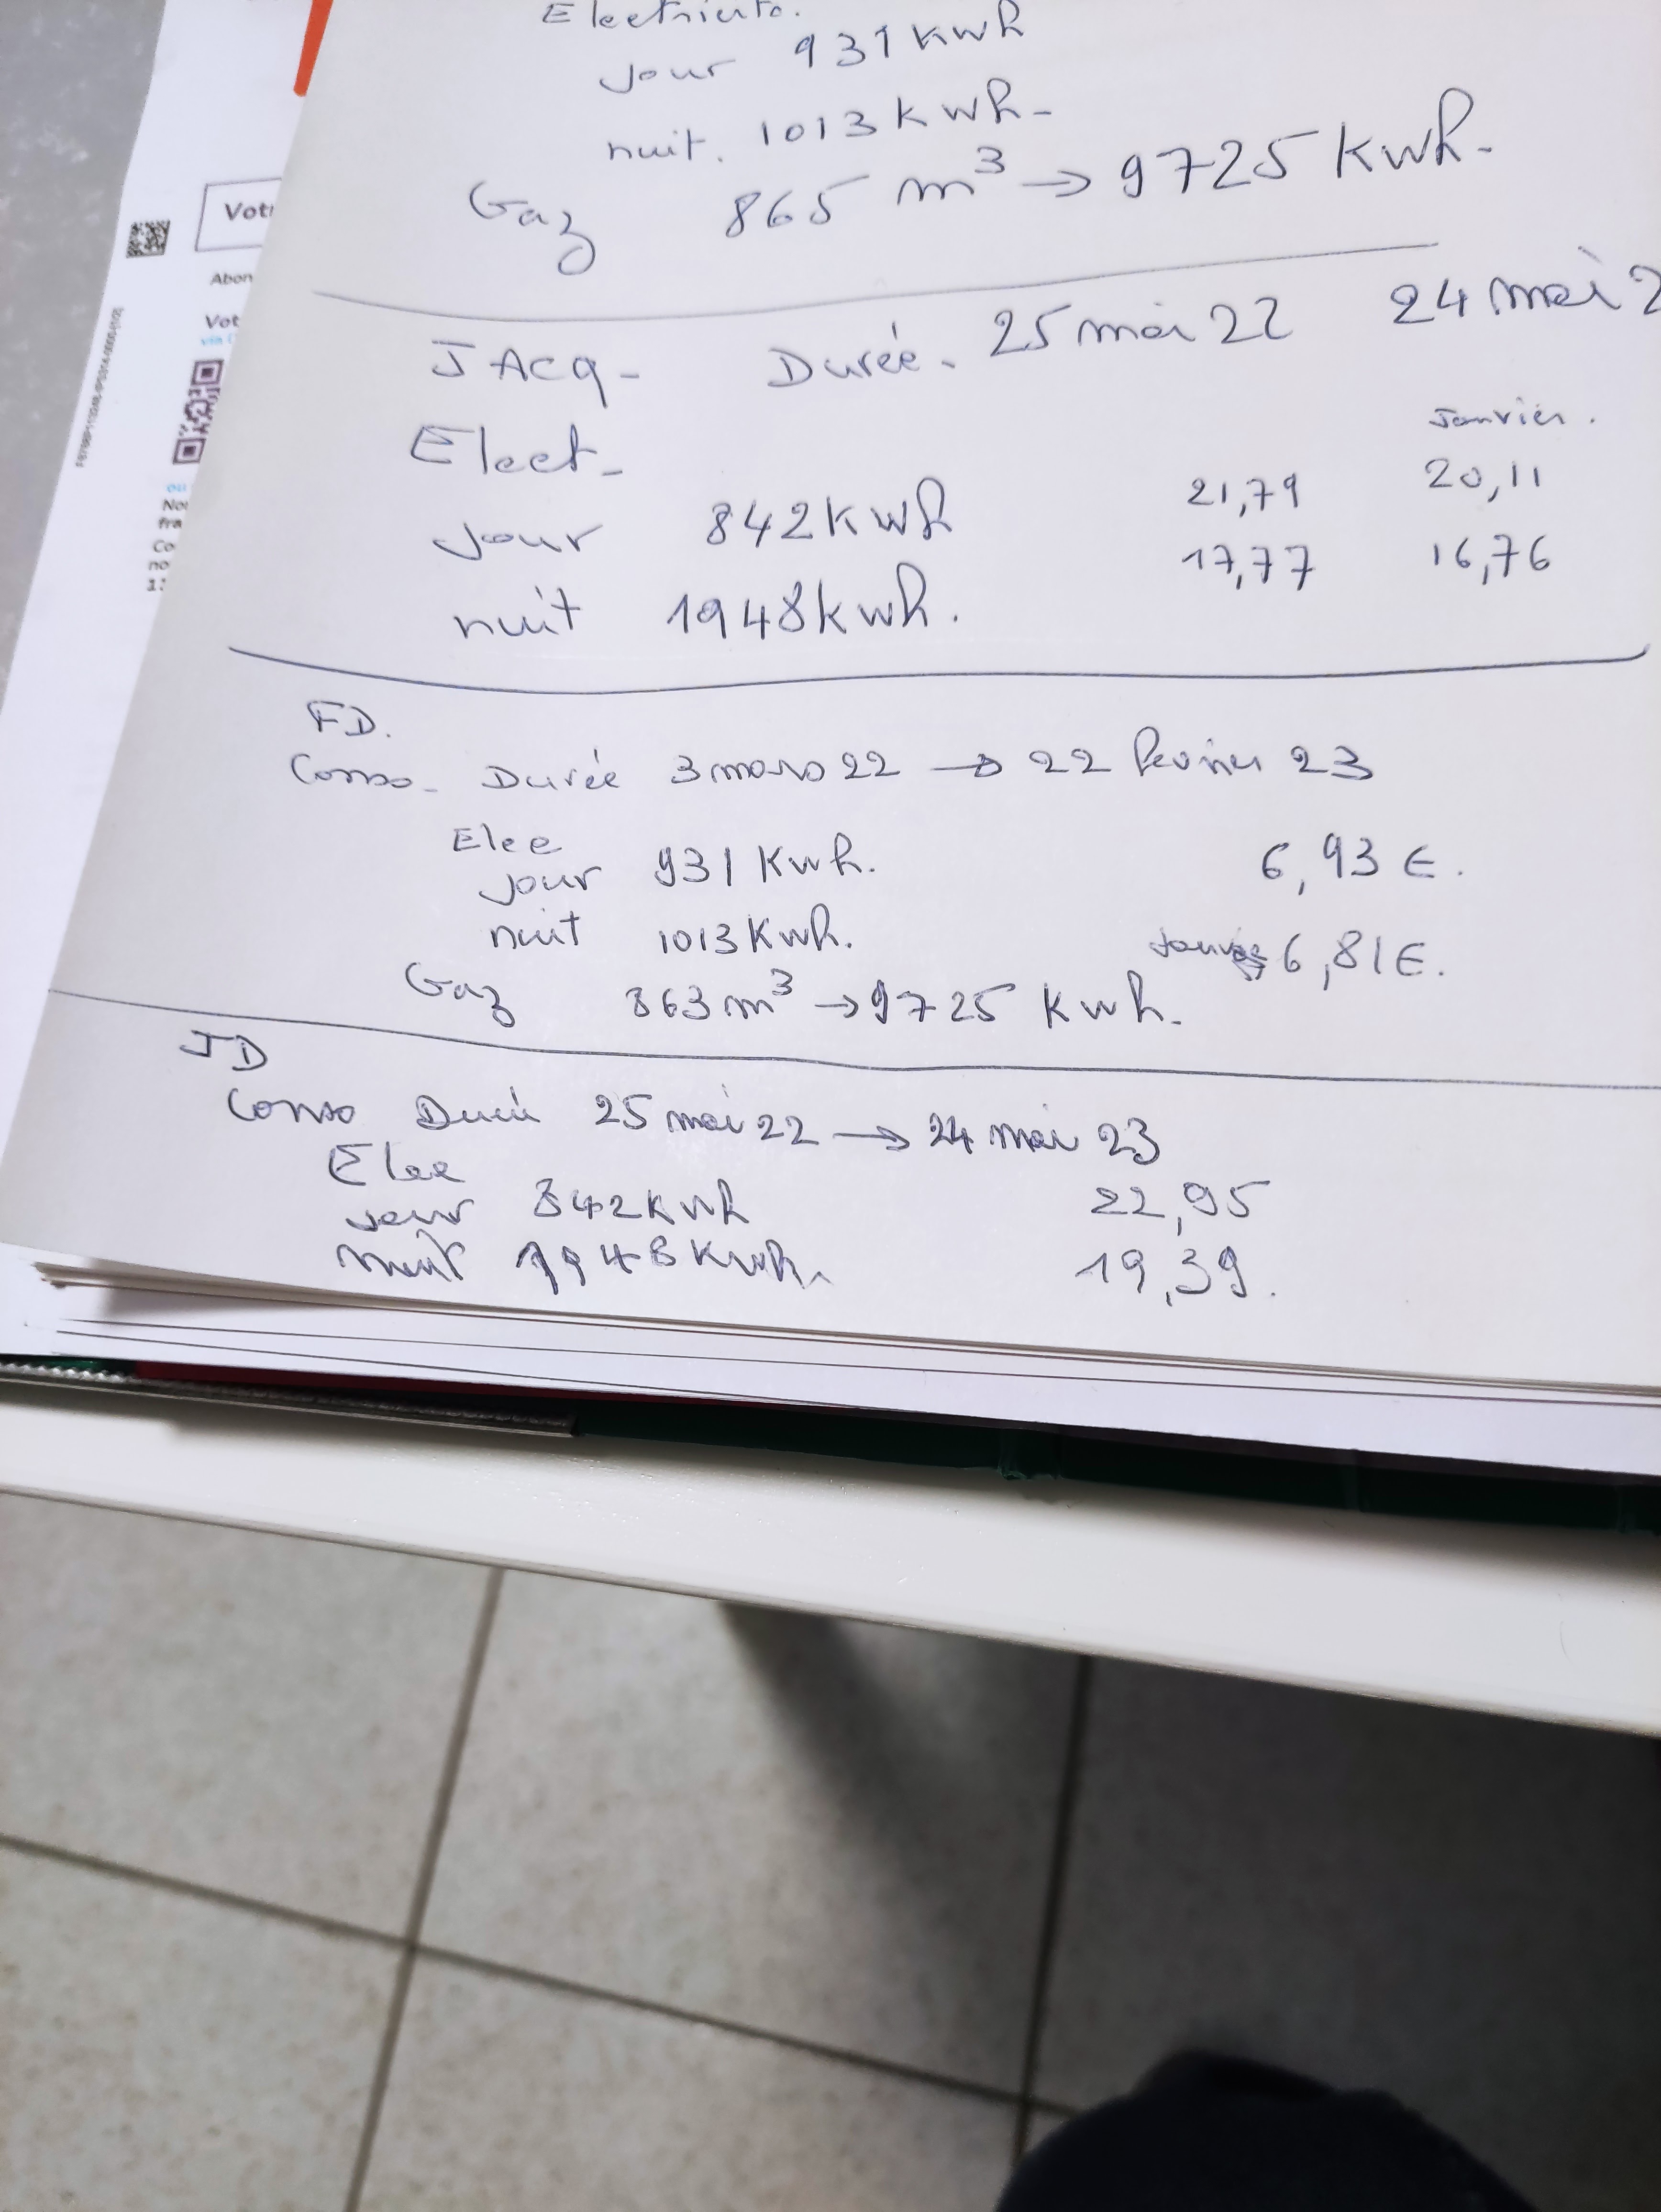 Electricité.
Jour 931 kwh
nuit. 1013 kwh-
Gaz 865 m³ → 9725 kwh.
JAcq- Durée. 25 mai 22 24 mai 2
Elect- Janvier.
Jour 842 kwh 21,79 20,11
nuit 1948 kwh. 17,77 16,76
FD.
Conso- Durée 3 mars 22 → 22 février 23
Elec
Jour 931 Kwh. 6,93 €.
nuit 1013 Kwh. 6,81€.
Gaz 863 m³ → 9725 Kwh.
JD
Conso Durée 25 mai 22 → 24 mai 23
Elec
Jour 842 Kwh 22,95
Nuit 1948 Kwh. 19,39.
Vot
Abon
Vot
via
ou
No
fra
Co
no